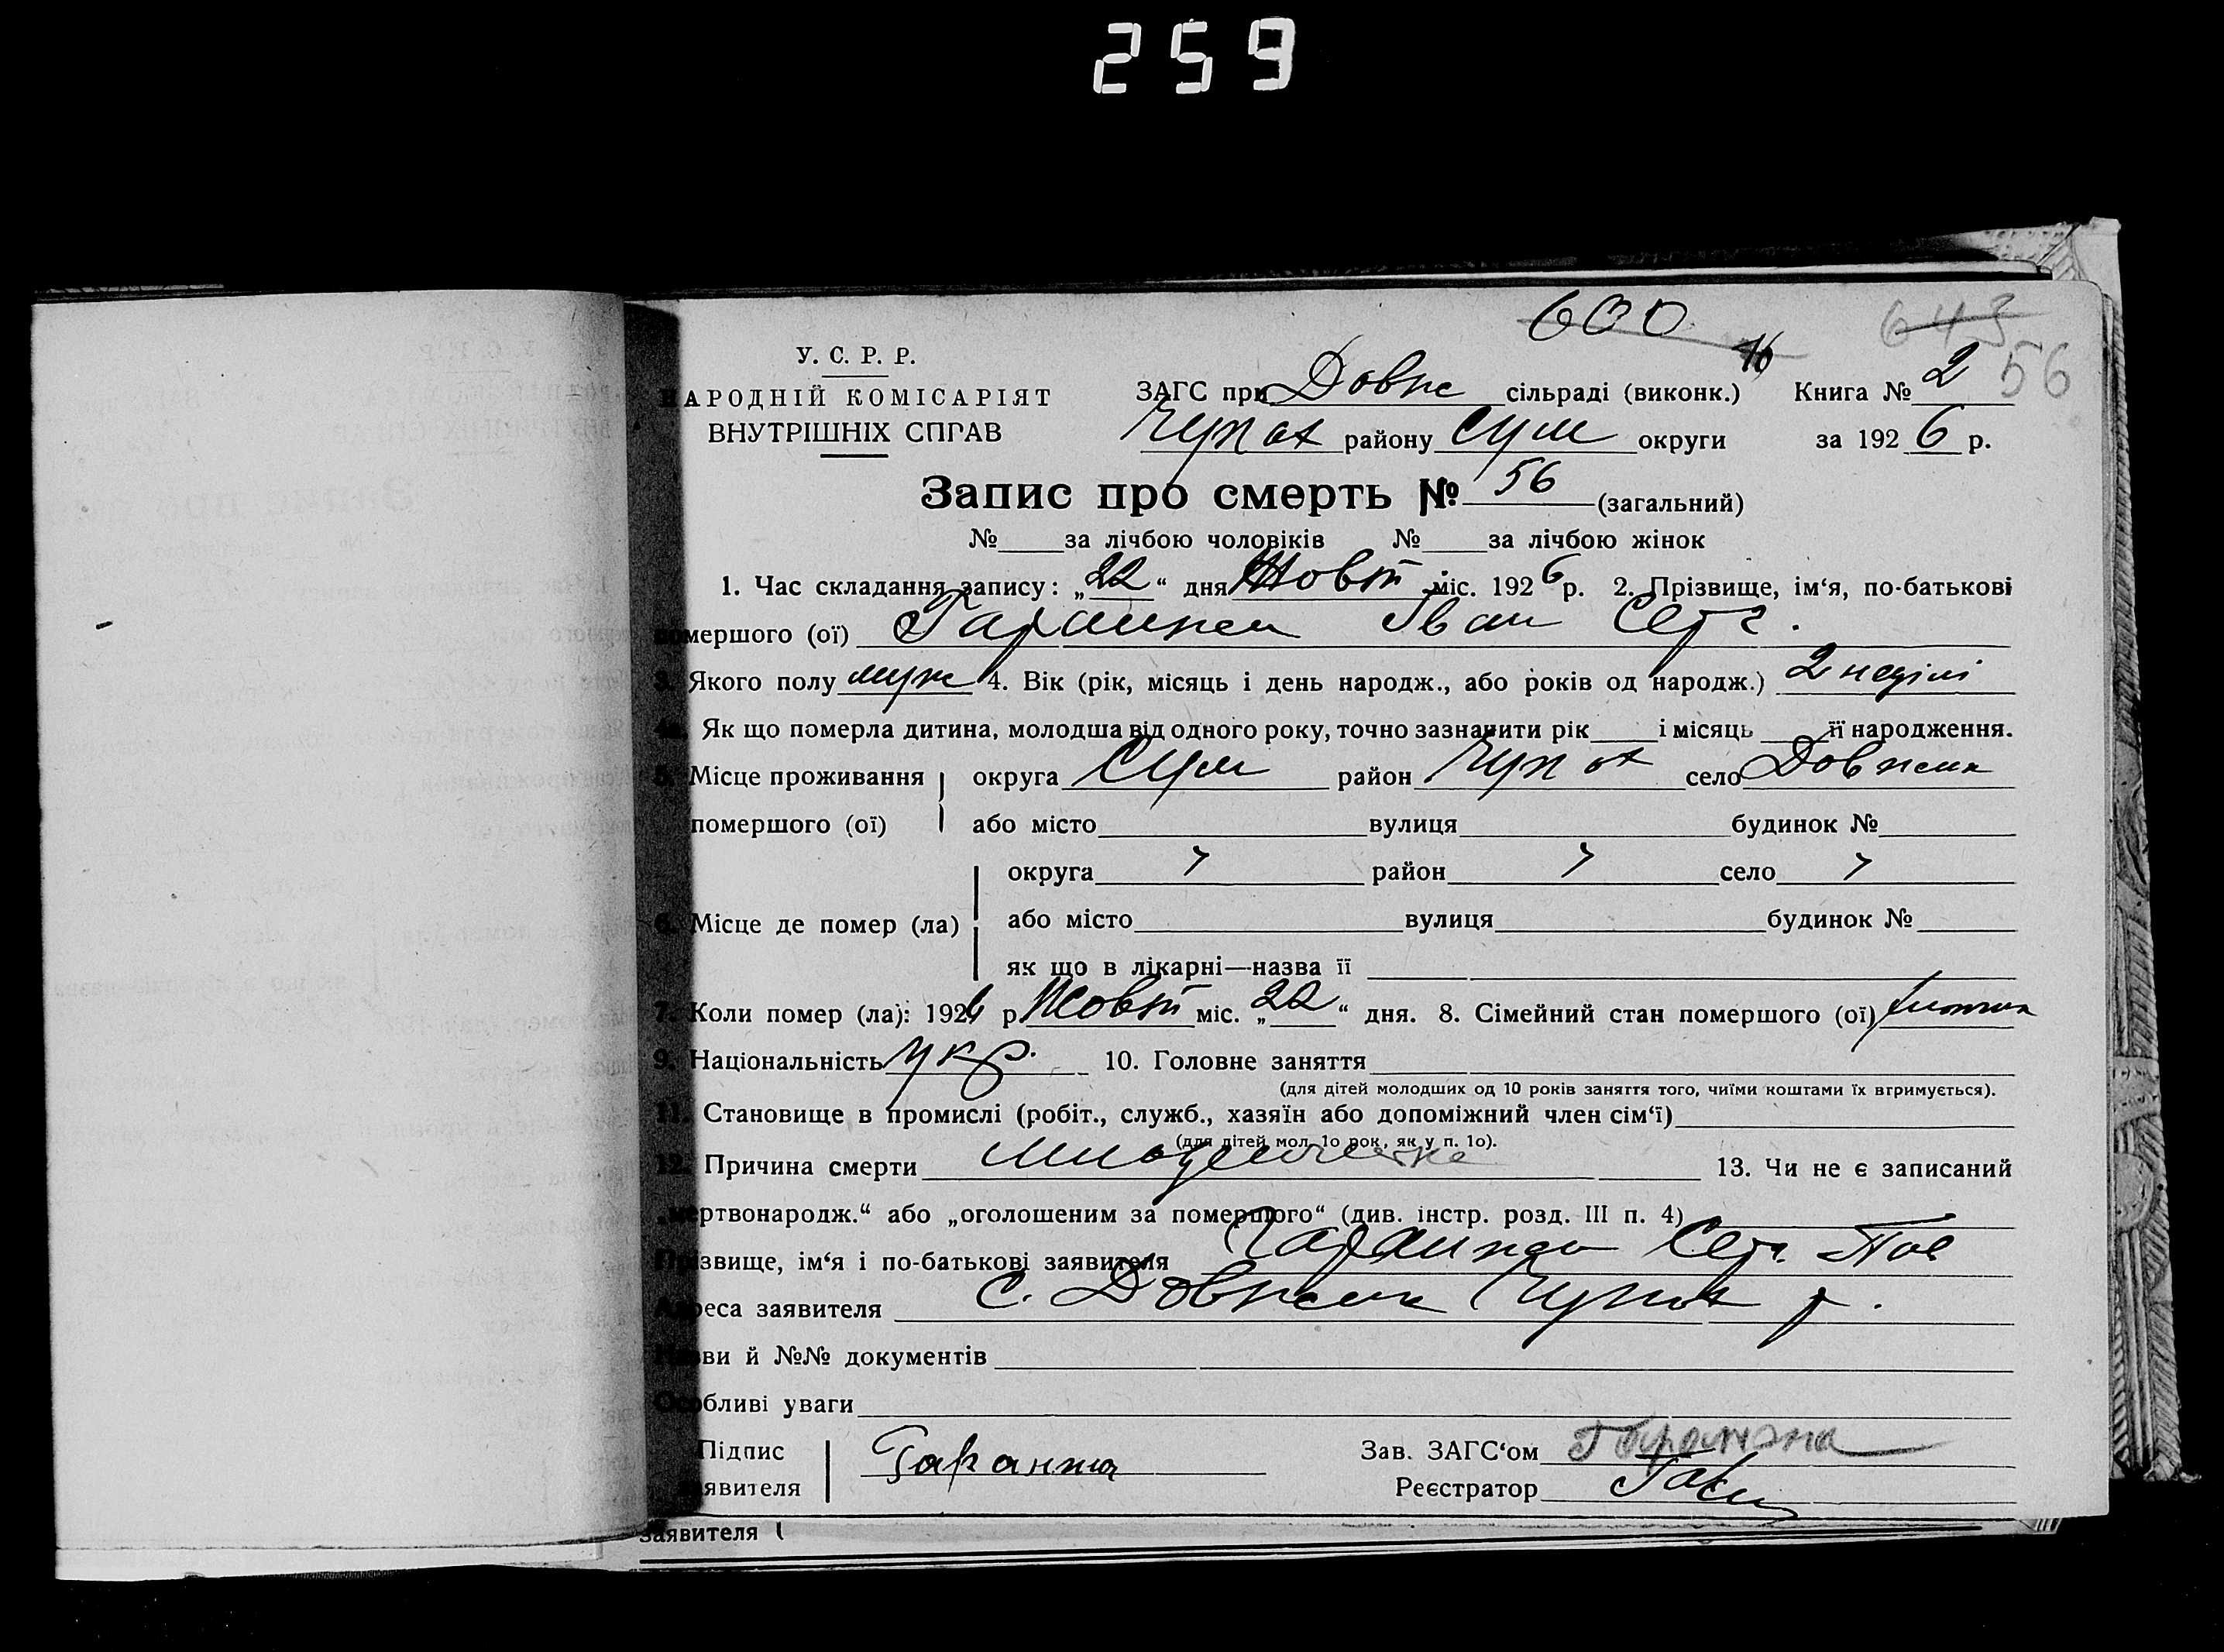 259
600
643
У. С. Р. Р.
НАРОДНІЙ КОМІСАРІЯТ
ВНУТРІШНІХ СПРАВ
ЗАГС при Довж сільраді (виконк.) Книга № 2 56
Чупах району Сум округи за 1926 р.
Запис про смерть № 56 (загальний)
№ за лічбою чоловіків № за лічбою жінок
1. Час складання запису: „22“ дня Жовт міс. 1926 р. 2. Прізвище, ім‘я, по-батькові
помершого (ої) Гаранжа Іван Серг.
3. Якого полу муж 4. Вік (рік, місяць і день народж., або років од народж.) 2 неділі
4а. Як що померла дитина, молодша від одного року, точно зазначити рік і місяць її народження.
5. Місце проживання округа Сум район Чупах село Довжик
помершого (ої) або місто вулиця будинок №
округа район село
6. Місце де помер (ла) або місто вулиця будинок №
як що в лікарні—назва її
7. Коли помер (ла): 1926 р. Жовт міс. „22“ дня. 8. Сімейний стан помершого (ої)
9. Національність укр. 10. Головне заняття
(для дітей молодших од 10 років заняття того, чиїми коштами їх втримується).
11. Становище в промислі (робіт., служб., хазяїн або допоміжний член сім‘ї)
(для дітей мол. 10 рок, як у п. 10).
12. Причина смерти 13. Чи не є записаний
„мертвонародж.“ або „оголошеним за помершого“ (див. інстр. розд. III п. 4)
Прізвище, ім‘я і по-батькові заявителя Гаранжа Серг.
Адреса заявителя с. Довжик Чупах р.
Назви й №№ документів
Особливі уваги
Підпис заявителя Гаранжа
Зав. ЗАГС‘ом Гаранжа
Реєстратор
заявителя